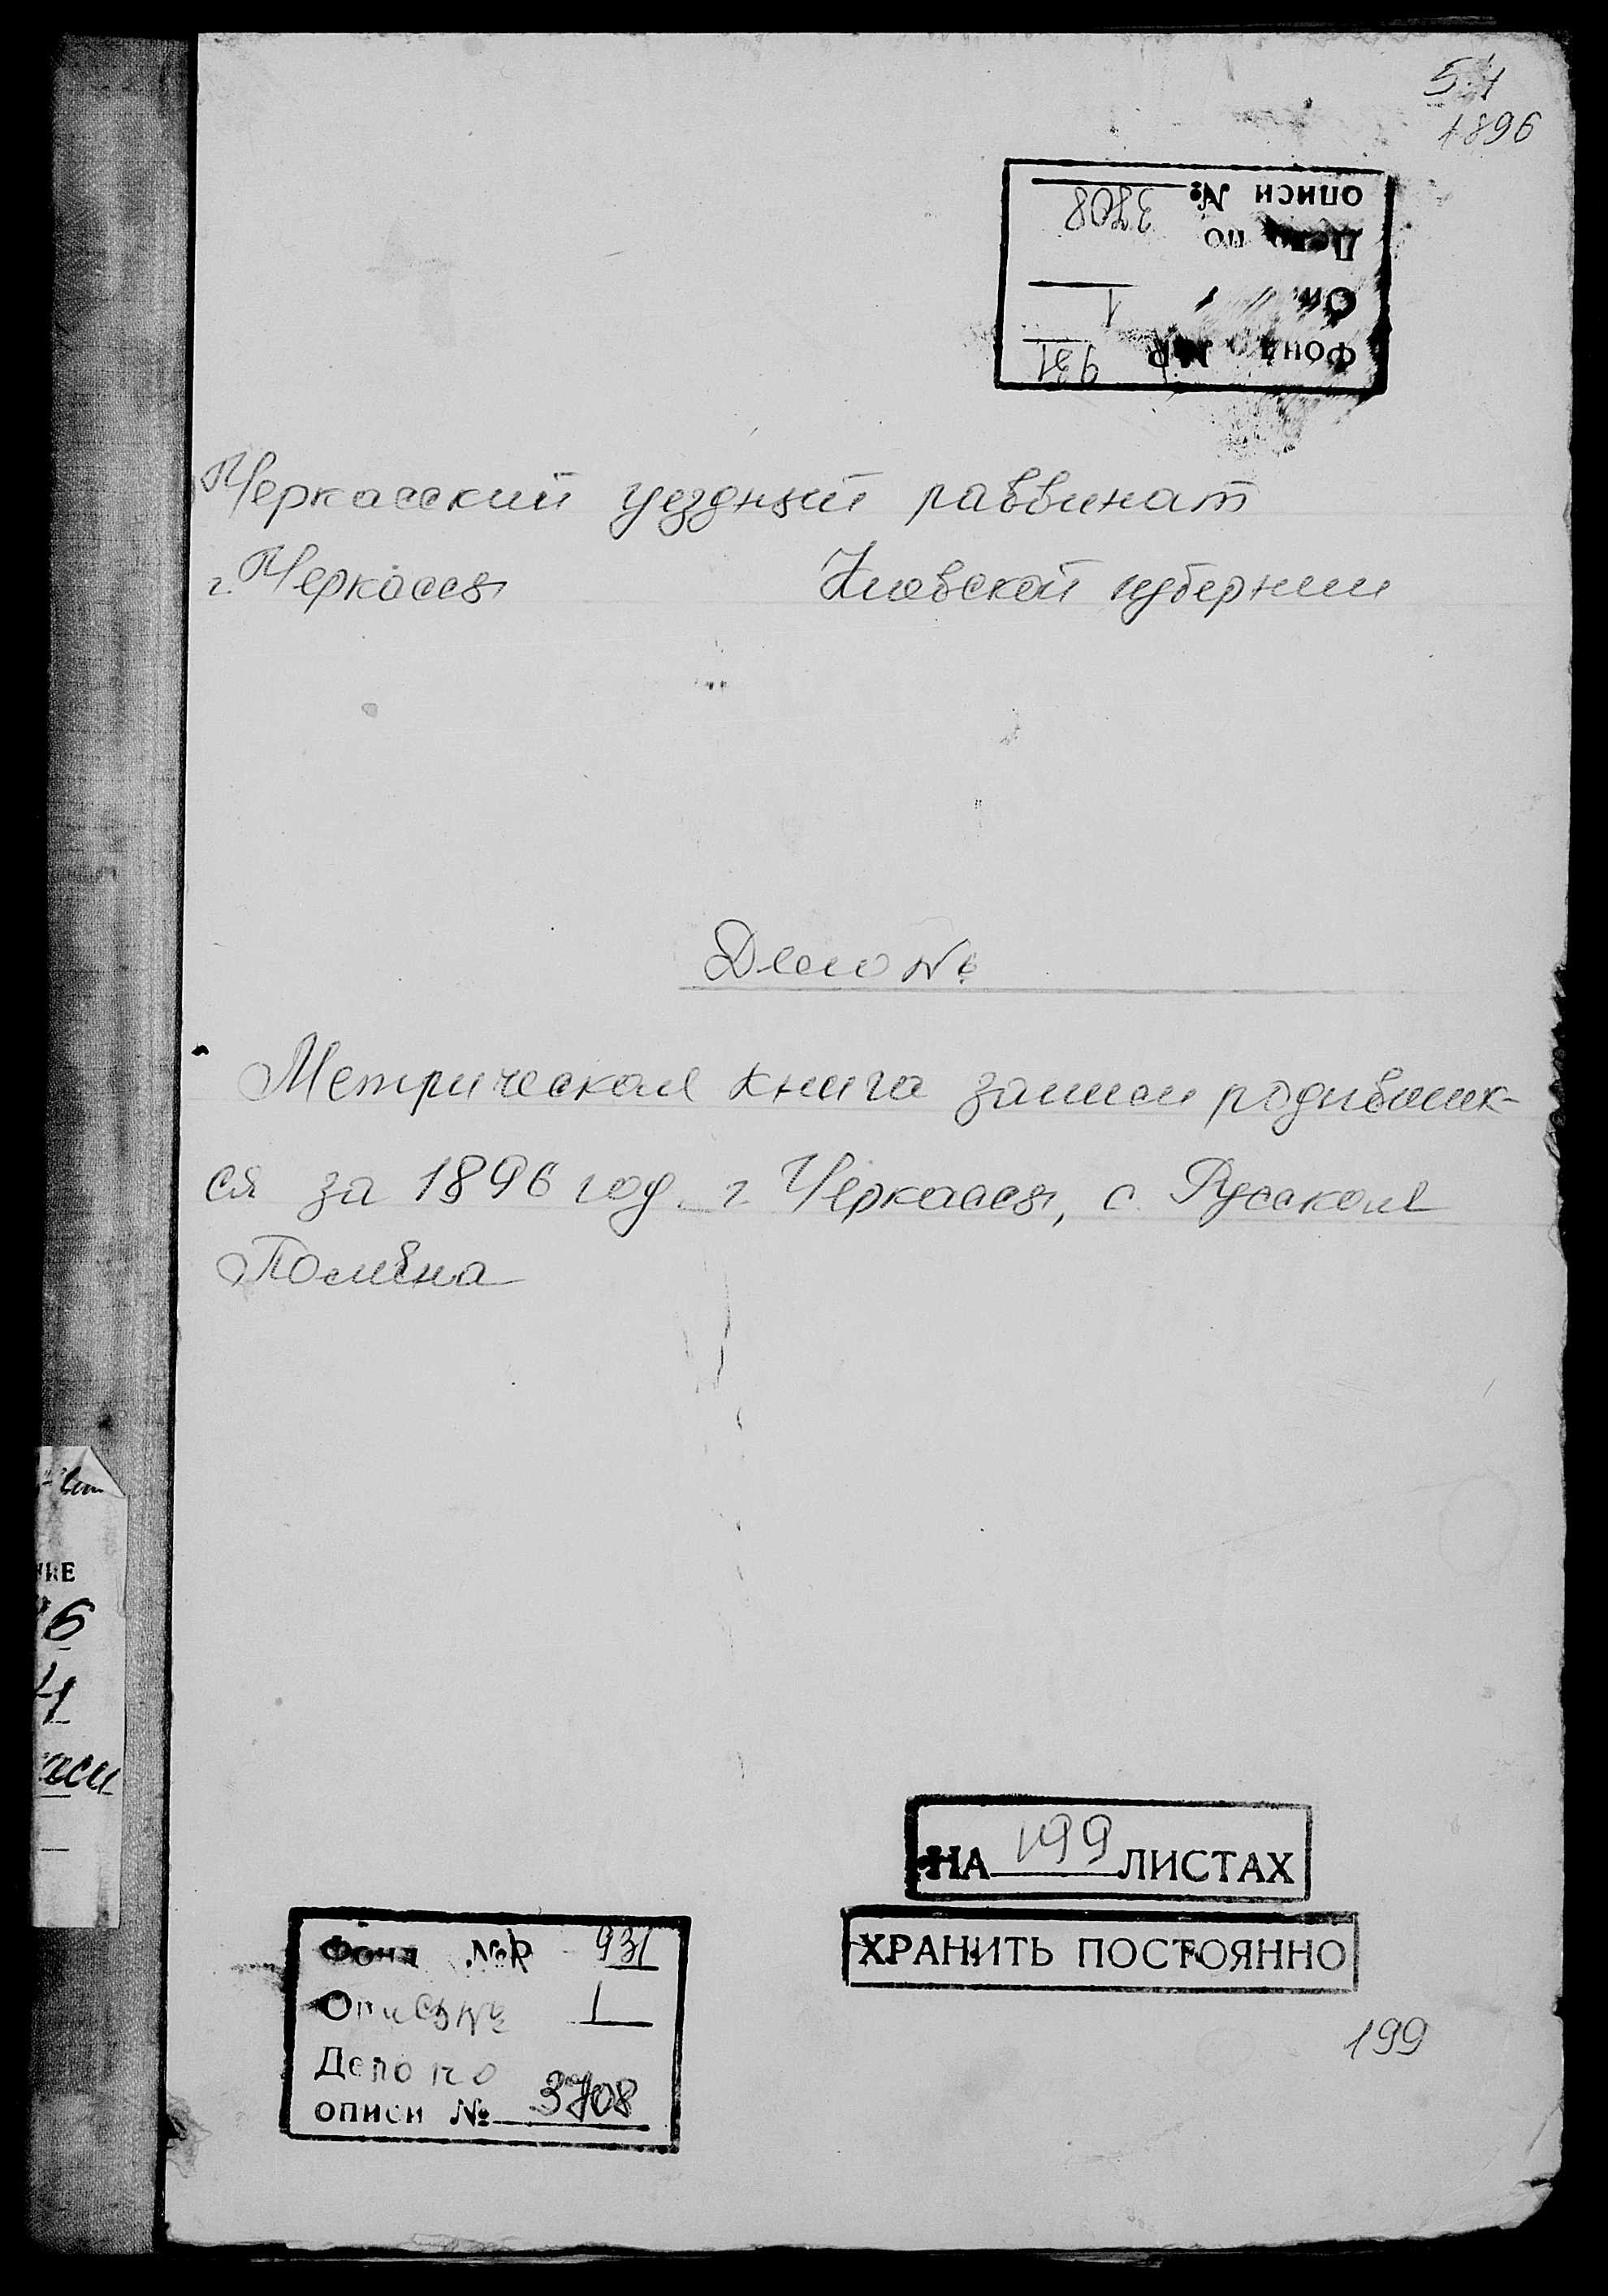 54
1896
описи № 3708
Дело по
Оп. 1
Фонд №Р 931
Черкасский уездный раввинат
г. Черкассы Киевской губернии
Дело №
Метрическая книга записи родивших-
ся за 1896 год г. Черкассы, с. Русская
Поляна
НИЕ
6
4
аси
НА 199 ЛИСТАХ
ХРАНИТЬ ПОСТОЯННО
Фонд №Р 931
Опись № 1
Дело по
описи № 3708
199